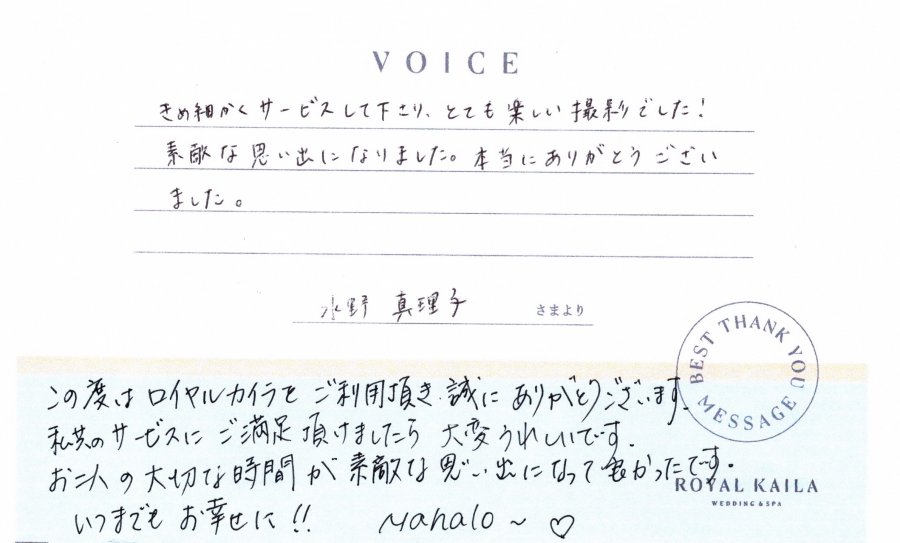 VOICE
きめ細かくサービスして下さり、とても楽しい撮影でした!
素敵な思い出になりました。本当にありがとうござい
ました。
水野 真理子 さまより
BEST THANK YOU MESSAGE
この度はロイヤルカイラをご利用頂き、誠にありがとうございます。
私共のサービスにご満足頂けましたら大変うれしいです。
お二人の大切な時間が素敵な思い出になって良かったです。
ROYAL KAILA
WEDDING & SPA
いつまでもお幸せに!! Mahalo ~ ♡